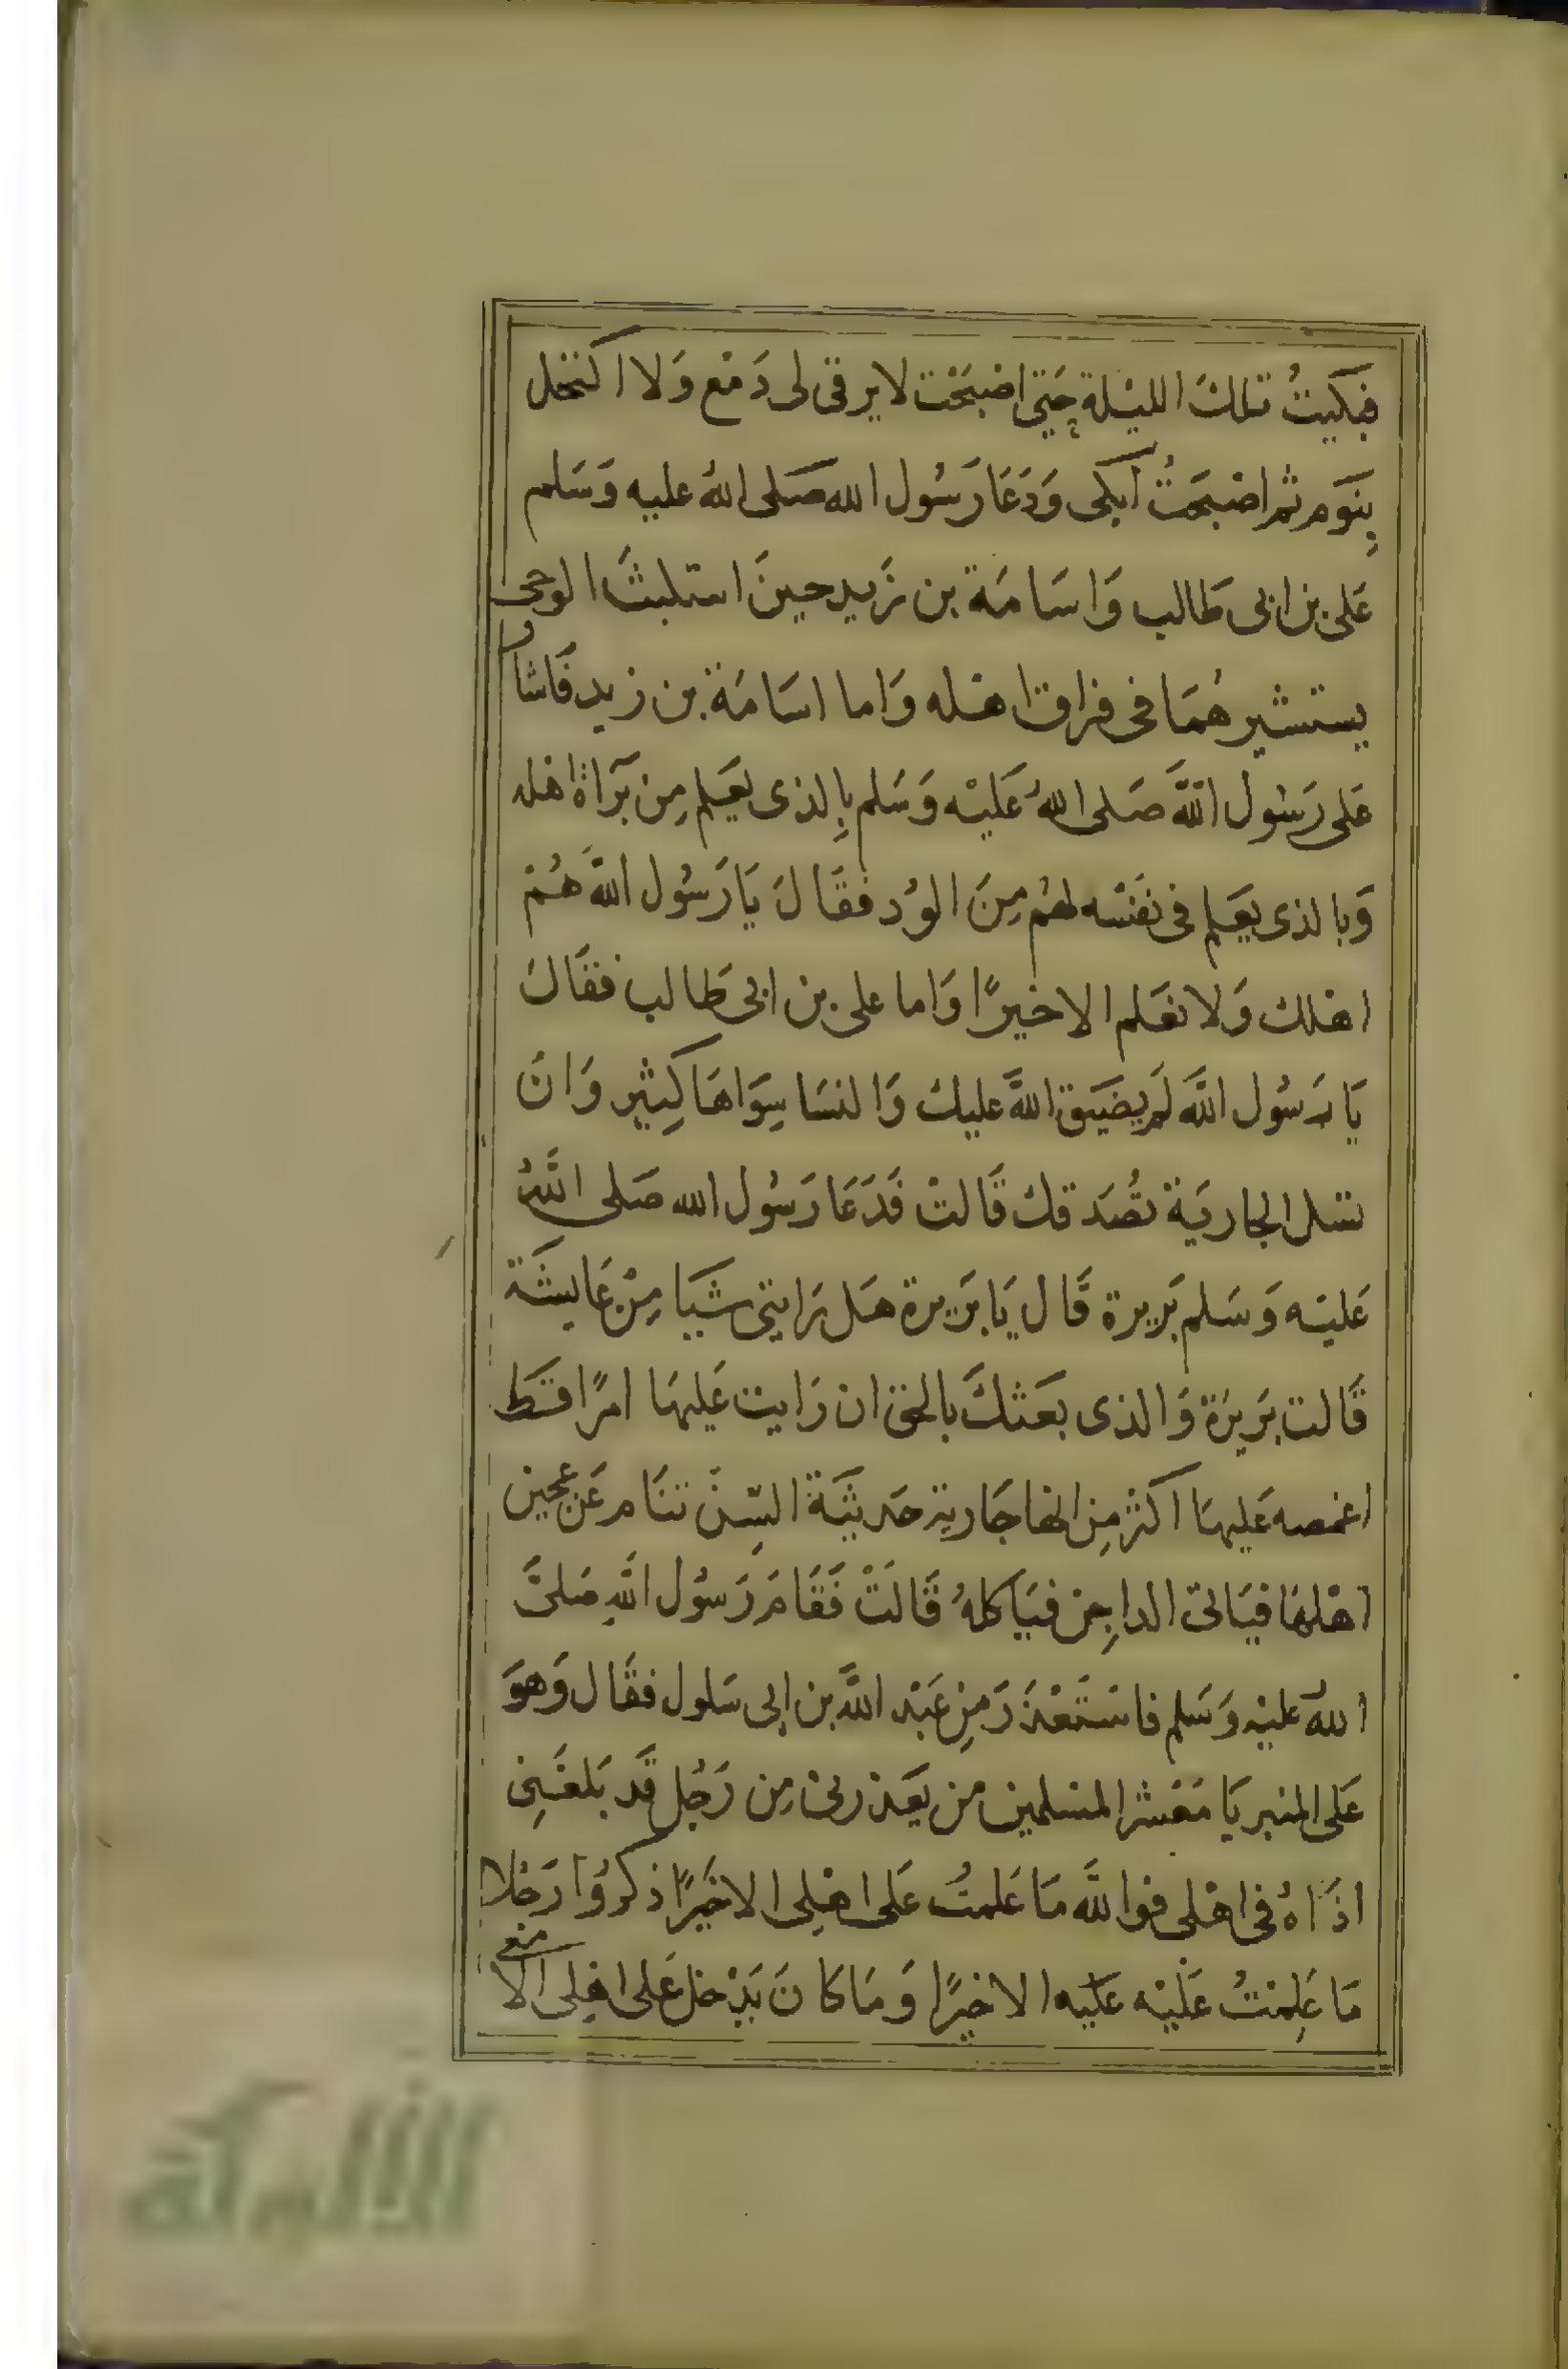 فبكيتُ تلك الليلة حتى اصبحت لا يرقى لى دمع ولا اكتحل
بِنَوم ثم اصبحتُ ابكى وَدَعَا رَسُول الله صَلى اللهُ عليه وَسَلم
عَلى بن ابى طَالب وَاسَامَة بن زَيد حينَ استلبثَ الوحى
يستشيرهُمَا فى فراق اهله وَاما اسَامَة بن زيد فَاشار
عَلى رَسُول اللَّه صَلى اللهُ عَليْه وَسَلم بِالذى يعَلم مِن بَرَاة اهله
وَبا لذى يعَلم فى نفسْه لهُم مِنَ الوُد فقَالَ يَا رَسُول اللَّه هُمْ
اهلك وَلا نعَلم الا خيرًا وَاما على بن ابى طَالب فقَالَ
يَا رَسُول اللَّه لم يضيَق اللَّه عليك وَالنسَا سِوَاهَا كِثير وَان
تسَل الجاريَة تصُدَقك قَالتْ فَدَعَا رَسُول الله صَلى اللَّهُ
عَليْه وَسَلم بَريرة قَال يَا بَريرة هَل رَايتى شَيا مِنْ عَايشَة
قَالت بَريرَة وَالذى بعَثكَ بالحق ان رَايت عَليهَا امرًا قَط
اغمصه عَليهَا اكثر مِن انها جَارية حَديثَة السِّن تنَام عَن عجين
اهْلهَا فيَاتى الداجِن فيَاكلهُ قَالَتْ فَقَامَ رَسُول اللَّهِ صَلىَّ
اللهُ عليْه وَسَلم فاستَعْذَرَ مِن عَبْد اللَّه بن ابى سَلول فقَال وَهوَ
عَلى المنبر يَا مَعْشر المسْلمين من يعَذرنى مِن رَجُل قَد بَلغَنِى
اذَاهُ فى اهْلى فوا للَّه مَا عَلمتُ عَلى اهْلِى الا خَيرًا ذكرُوا رَجُلا
مَا عَلِمْتُ عَلَيْه عَليه الا خيرًا وَمَا كا نَ يَدْخل عَلى اهلِى الا
معى